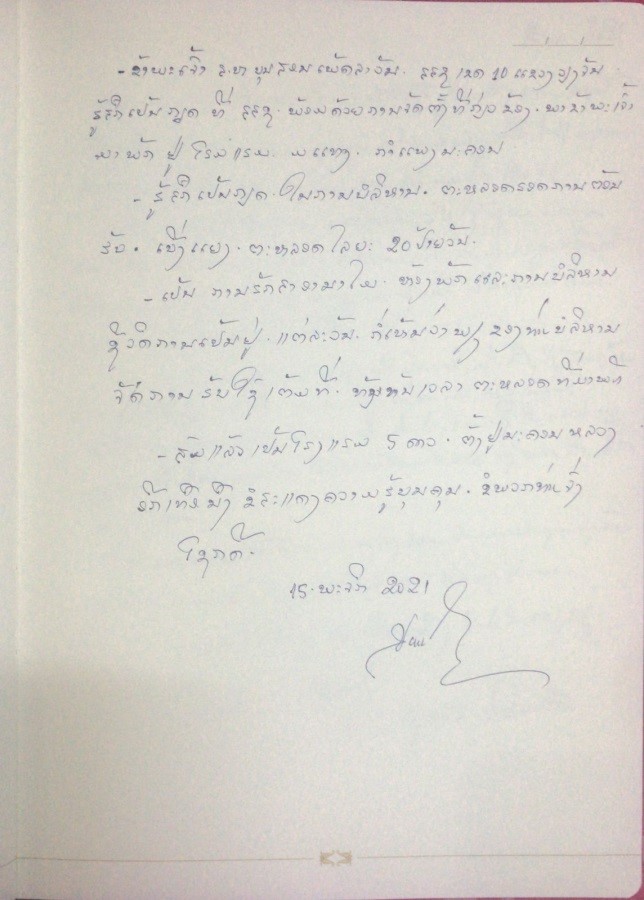 - ຂ້າພະເຈົ້າ ສ.ຫາ ບຸນສອນ ເພັດລາວັນ. ສສຊ ເຂດ 10 ແຂວງວຽງຈັນ
ຮູ້ສຶກເປັນກຽດ ທີ່ ສສຊ. ພ້ອມດ້ວຍການຈັດຕັ້ງທີ່ກ່ຽວຂ້ອງ. ພາຂ້າພະເຈົ້າ
ມາພັກ ຢູ່ ໂຮງແຮມ ກຳແພງນະຄອນ
- ຮູ້ສຶກເປັນກຽດ. ໃນການບໍລິຫານ. ຕະຫລອດຮອດການຕ້ອນ
ຮັບ. ເບິ່ງແຍງ. ຕະຫລອດໄລຍະ 20 ປາຍວັນ.
- ເປັນ ການຮັກສາອານາໄມ. ຫ້ອງພັກ ແລະ ການບໍລິຫານ
ຊີວິດການເປັນຢູ່. ແຕ່ລະວັນ. ກໍ່ເຫັນວ່າ ຂອງທ່ານບໍລິຫານ
ຈັດການ ຮັບໃຊ້ ເຕັມທີ່. ທັນເວລາ ຕະຫລອດທີ່ມາພັກ
- ສົມແລ້ວ ເປັນໂຮງແຮມ 5 ດາວ. ຕັ້ງຢູ່ນະຄອນຫລວງ
ອີກເທື່ອນຶ່ງ ຂໍສະແດງຄວາມຮູ້ບຸນຄຸນ. ຂໍພວກທ່ານຈົ່ງ
ໂຊກດີ.
15. ພະຈິກ 2021